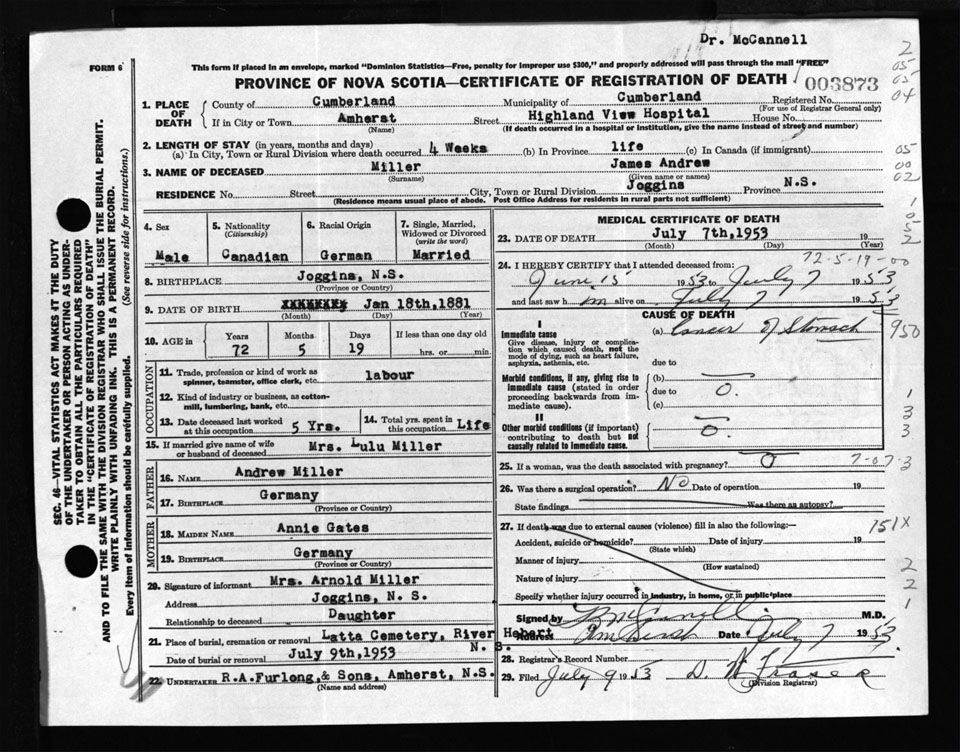 Dr. McCannell
FORM 6
This form if placed in an envelope, marked "Dominion Statistics—Free, penalty for improper use $300," and properly addressed will pass through the mail "FREE"
PROVINCE OF NOVA SCOTIA—CERTIFICATE OF REGISTRATION OF DEATH
003873
1. PLACE OF DEATH
County of Cumberland Municipality of Cumberland Registered No.
(For use of Registrar General only)
If in City or Town Amherst Street Highland View Hospital House No.
(Name) (If death occurred in a hospital or institution, give the name instead of street and number)
2. LENGTH OF STAY (in years, months and days)
(a) In City, Town or Rural Division where death occurred 4 Weeks (b) In Province life (c) In Canada (if immigrant)
3. NAME OF DECEASED Miller James Andrew
(Surname) (Given name or names)
RESIDENCE No. Street City, Town or Rural Division Joggins Province N.S.
(Residence means usual place of abode. Post Office Address for residents in rural parts not sufficient)
4. Sex
Male
5. Nationality
(Citizenship)
Canadian
6. Racial Origin
German
7. Single, Married, Widowed or Divorced
(write the word)
Married
8. BIRTHPLACE Joggins, N.S.
(Province or Country)
9. DATE OF BIRTH Jan 18th,1881
(Month) (Day) (Year)
10. AGE in
Years Months Days If less than one day old
72 5 19 hrs. or min.
OCCUPATION
11. Trade, profession or kind of work as spinner, teamster, office clerk, etc. labour
12. Kind of industry or business, as cotton-mill, lumbering, bank, etc.
13. Date deceased last worked at this occupation 5 Yrs.
14. Total yrs. spent in this occupation Life
15. If married give name of wife or husband of deceased Mrs. Lulu Miller
FATHER
16. NAME Andrew Miller
17. BIRTHPLACE Germany
(Province or Country)
MOTHER
18. MAIDEN NAME Annie Gates
19. BIRTHPLACE Germany
(Province or Country)
20. Signature of informant Mrs. Arnold Miller
Address Joggins, N. S.
Relationship to deceased Daughter
21. Place of burial, cremation or removal Latta Cemetery, River Hebert
N. S.
Date of burial or removal July 9th,1953
22. UNDERTAKER R.A.Furlong,& Sons, Amherst, N.S.
(Name and address)
MEDICAL CERTIFICATE OF DEATH
23. DATE OF DEATH July 7th,1953 19
(Month) (Day) (Year)
72-5-19-00
24. I HEREBY CERTIFY that I attended deceased from:
June 15 1953 to July 7 1953
and last saw h im alive on July 7 1953
CAUSE OF DEATH
I
Immediate cause
Give disease, injury or complication which caused death, not the mode of dying, such as heart failure, asphyxia, asthenia, etc.
(a) Cancer of Stomach
950
due to
Morbid conditions, if any, giving rise to immediate cause (stated in order proceeding backwards from immediate cause).
(b)
due to O.
(c)
II
Other morbid conditions (if important) contributing to death but not causally related to immediate cause.
O.
25. If a woman, was the death associated with pregnancy? O
7-07-3
26. Was there a surgical operation? No Date of operation 19
State findings Was there an autopsy?
27. If death was due to external causes (violence) fill in also the following:—
151X
Accident, suicide or homicide? Date of injury 19
(State which)
Manner of injury
(How sustained)
Nature of injury
Specify whether injury occurred in industry, in home, or in public place
Signed by M.D.
Address Amherst Date July 7 1953
28. Registrar's Record Number
29. Filed July 9 1953 D. W Fraser
(Division Registrar)
2
05
05
04
05
00
02
1
0
5
2
1
3
3
2
2
1
SEC. 46—VITAL STATISTICS ACT MAKES IT THE DUTY
OF THE UNDERTAKER OR PERSON ACTING AS UNDER-
TAKER TO OBTAIN ALL THE PARTICULARS REQUIRED
IN THE "CERTIFICATE OF REGISTRATION OF DEATH"
AND TO FILE THE SAME WITH THE DIVISION REGISTRAR WHO SHALL ISSUE THE BURIAL PERMIT.
WRITE PLAINLY WITH UNFADING INK. THIS IS A PERMANENT RECORD.
Every item of information should be carefully supplied. (See reverse side for instructions.)